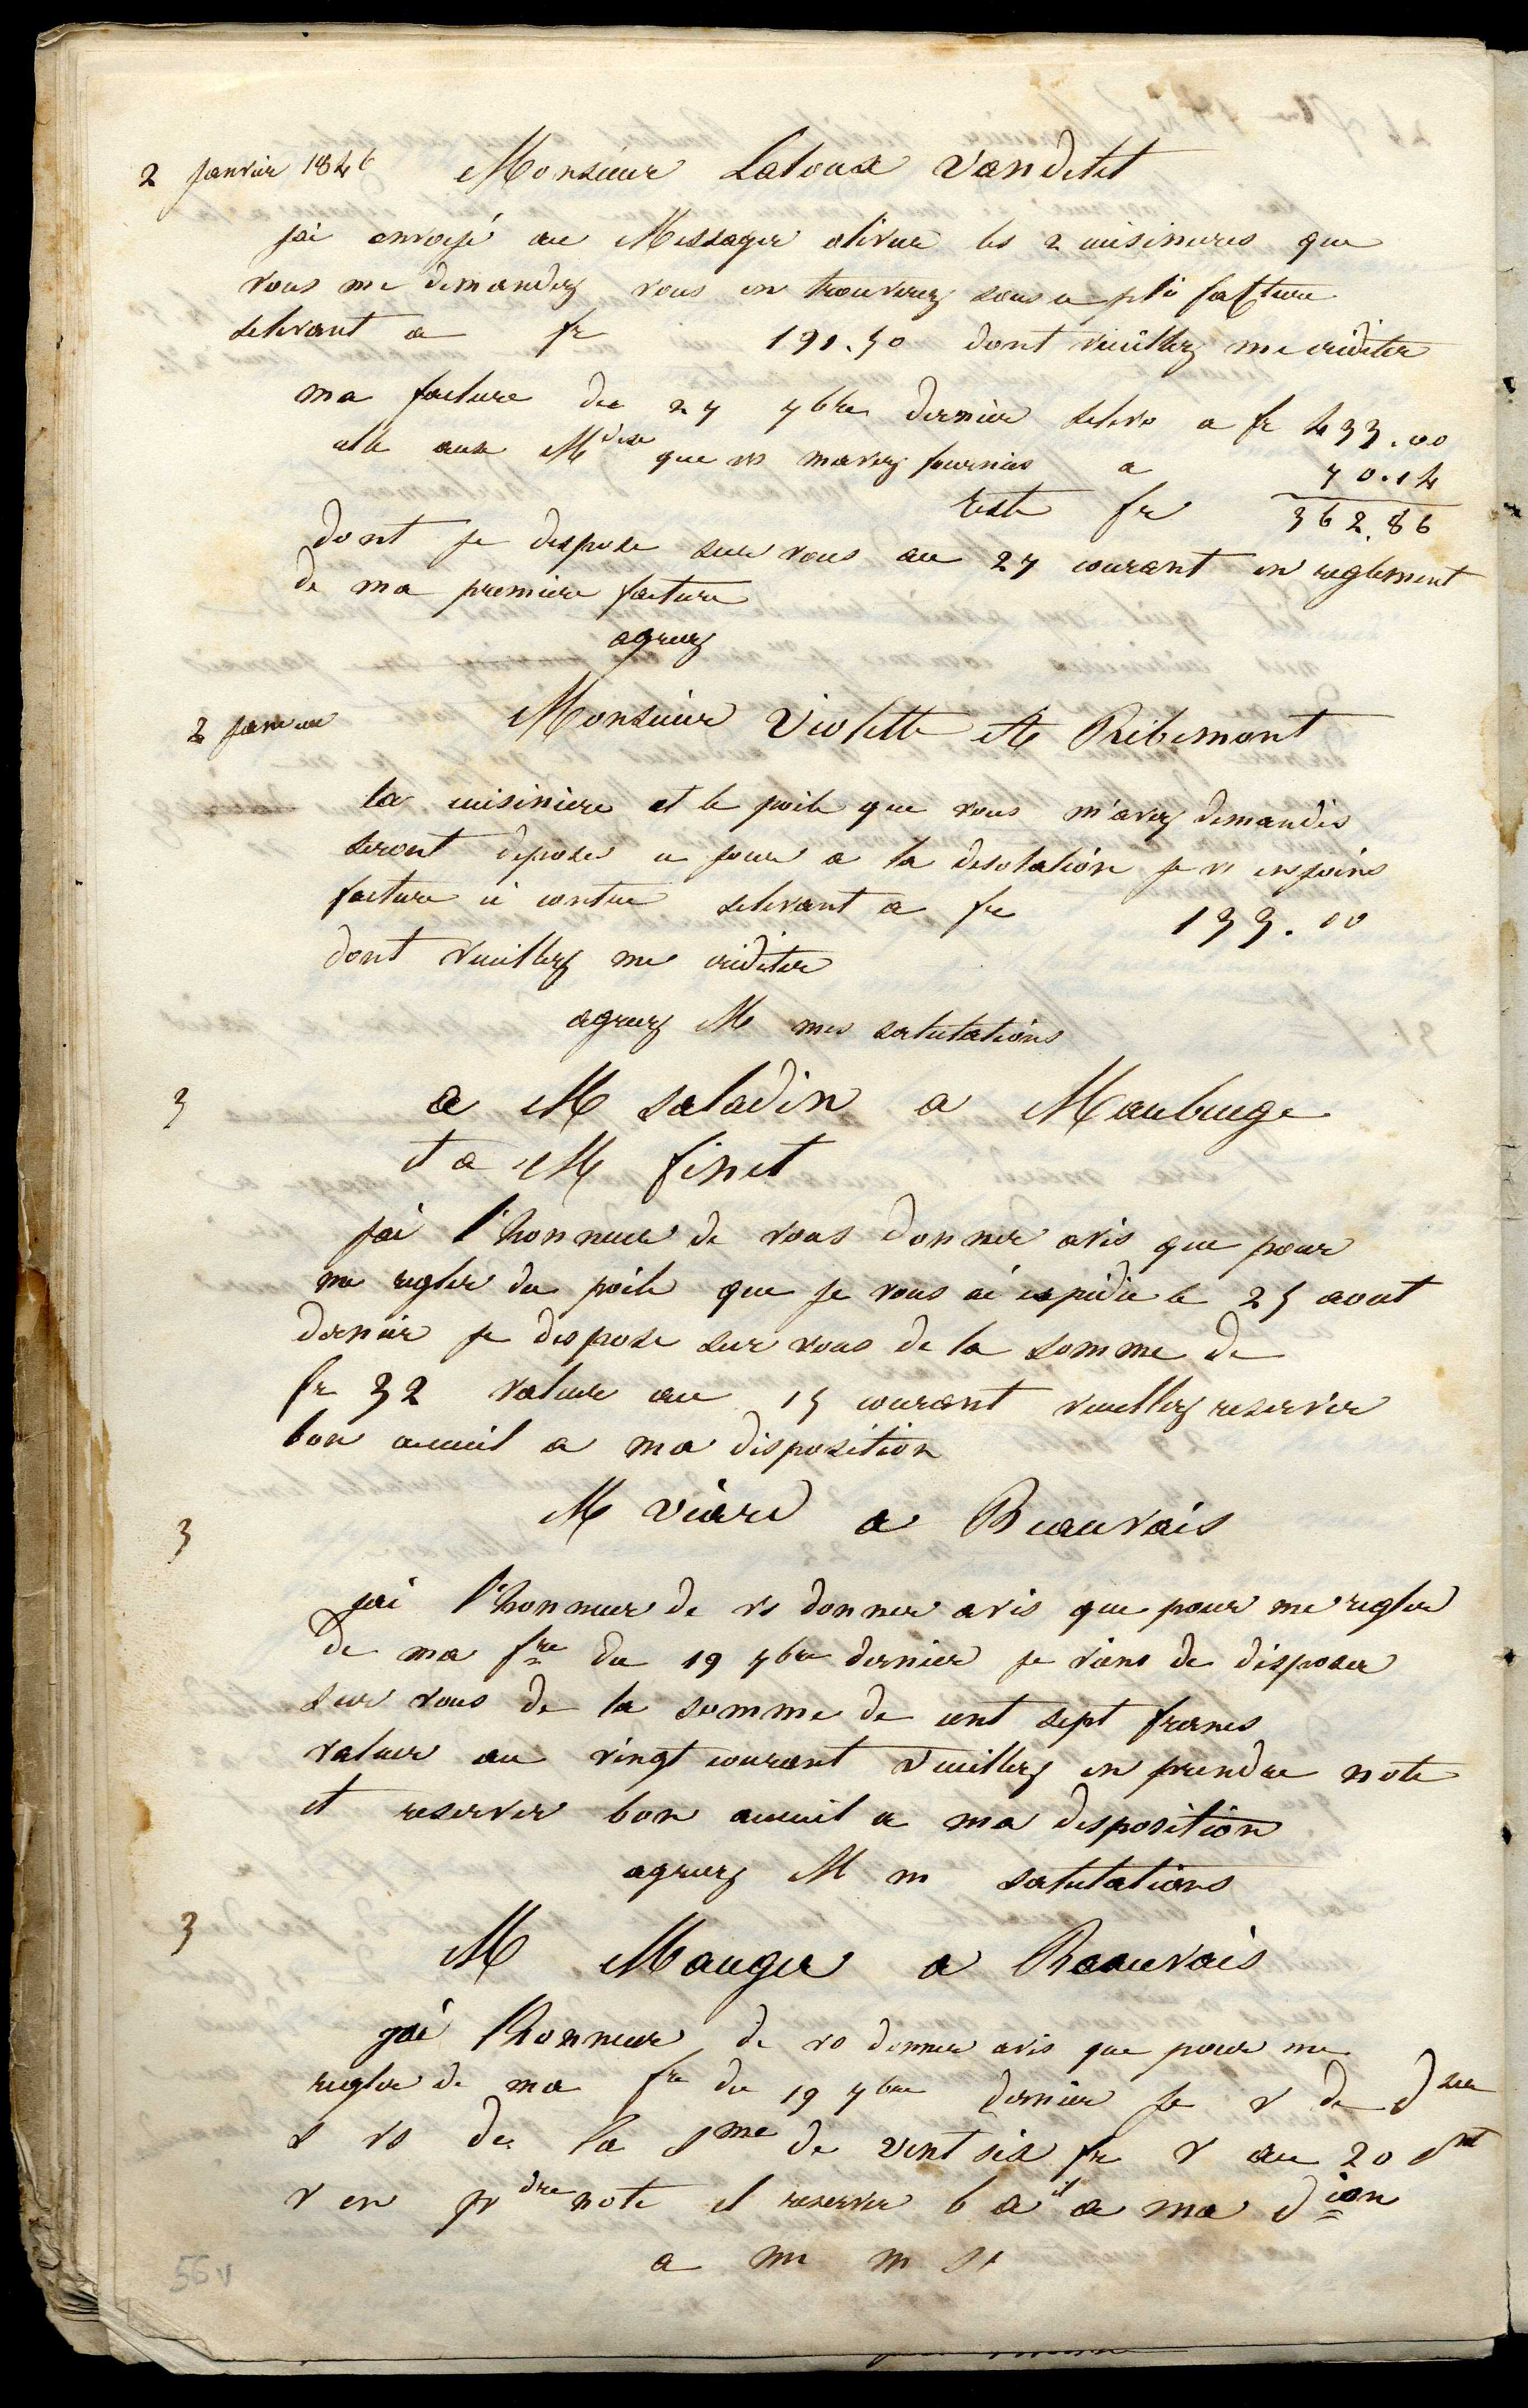 2 janvier 1846 Monsieur Latoux Vandetet
jai envoyé au Messager olivue les 2 cuisinieres que
vous me demandez vous en trouverez sous ce pli facture
selevant a fr 191.50 dont veuillez me crediter
ma facture du 27 7bre dernier seleve a fr 433.00
celle aux Mdises que vs mavez fournies a 70.14
Reste fr 362.86
dont je dispose sur vous au 27 courant en reglement
de ma premiere facture
agreez
2 janvier Monsieur Violette a Ribemont
la cuisiniere et le poile que vous m'avez demandés
seront deposés ce jour a la desolation je vs enjoins
facture ci contre selevant a fr 133.00
dont veuillez me crediter
agreez M mes salutations
3 a M saladin a Maubeuge
et a M finet
jai l'honneur de vous donner avis que pour
me regler du poile que je vous ai expedie le 25 aout
dernier je dispose sur vous de la somme de
fr 32 valeur au 15 courant veuillez reserver
bon acceuil a ma disposition
3 M viard a Beauvais
jai l'honneur de vs donner avis que pour me regler
de ma fre du 19 7bre dernier je viens de disposer
sur vous de la somme de cent sept francs
valeur au vingt courant veuillez en prendre note
et reserver bon acceuil a ma disposition
agreez M m salutations
3 M Mauger a Beauvais
jai lhonneur de vs donner avis que pour me
regler de ma fre du 19 7bre dernier je v de dser
s vs de la sme de vent six fr v au 20 ct
v en prdre note et reserver b ail a ma dion
a m m st
56v